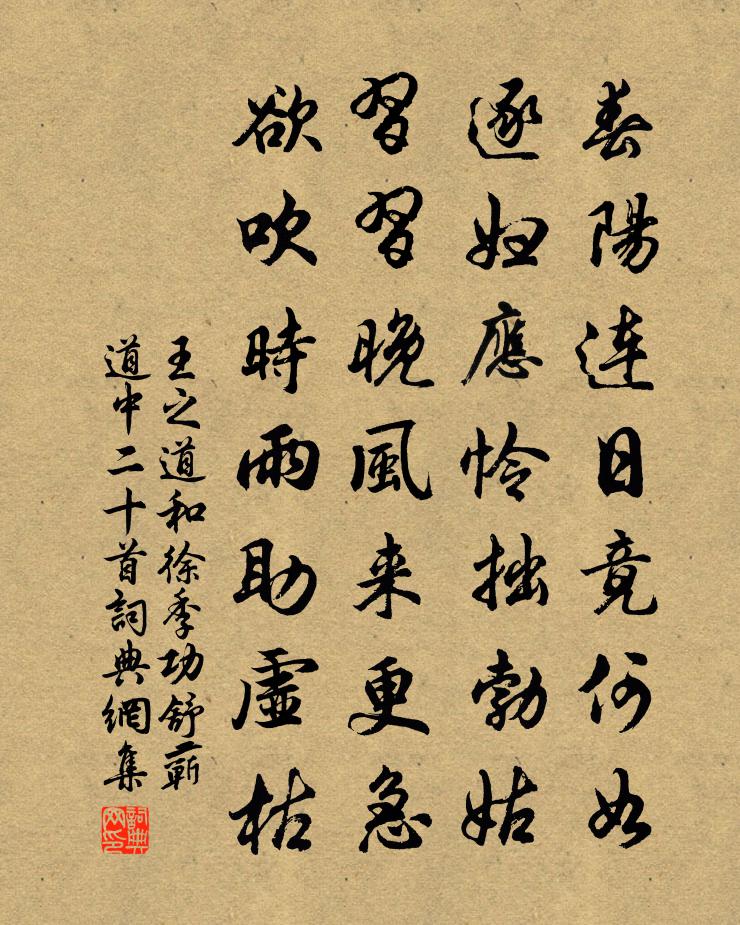 春陽連日竟何如
逐婦應怜拙勃姑
習習晚風来更急
欲吹時雨助虛枯
王之道和徐季功舒蘄
道中二十首詞典網集
詞典
网印